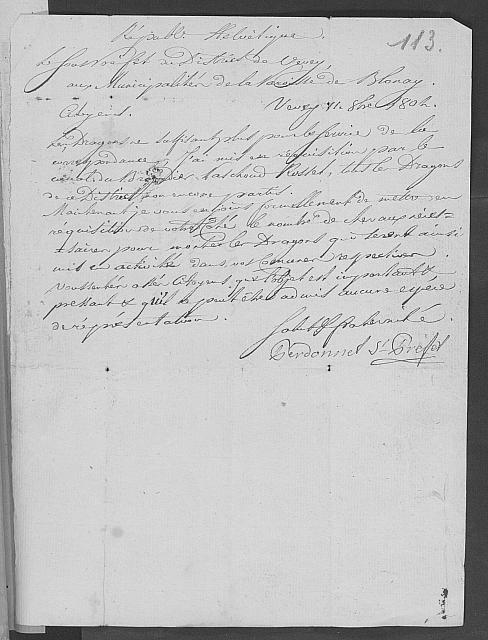 113.
Républ. Helvétique.
Le Sous Préfet du District de Vevey,
aux Municipalités de la Paroisse de Blonay.
Vevey 11. 8bre 1802.
Citoyens.
Les Dragons ne suffisant plus pour le service de la
correspondance, j'ai mis en réquisition par le
Taschoud Rosset, tous les Dragons
de ce District non encore partis.
Maintenant je vous enjoins formellement de mettre en
réquisition de votre Côté le nombre de chevaux néces-
saires pour monter les Dragons qui seront ainsi
mis en activité dans vos Communes respectives.
Vous sentés assés Citoyens que l'objet est important &
pressant & qu'il ne peut être admis aucune espèce
de représentation.
Salut & fraternité.
Perdonnet Ss. Préfet